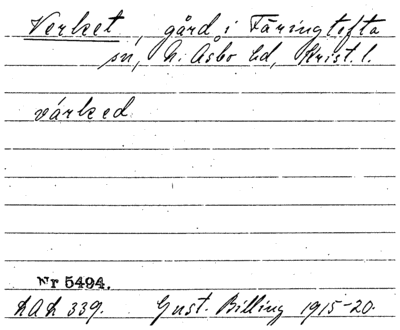 Verket, gård i Färingtofta
sn, N. Åsbo hd, Krist. l.
várked
Nr 5494.
LAL 339. Gust. Billing 1915-20.